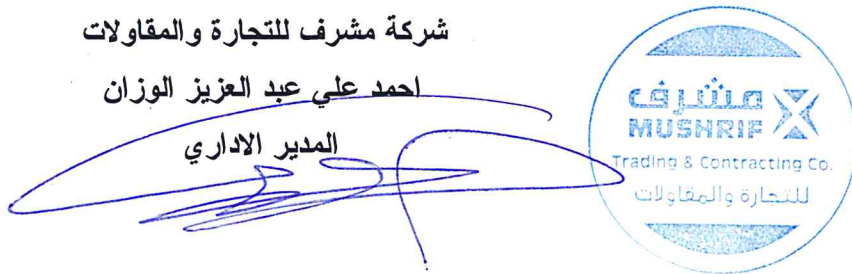 شركة مشرف للتجارة والمقاولات
احمد علي عبد العزيز الوزان
المدير الاداري
مشرف
MUSHRIF
Trading & Contracting Co.
للتجارة والمقاولات